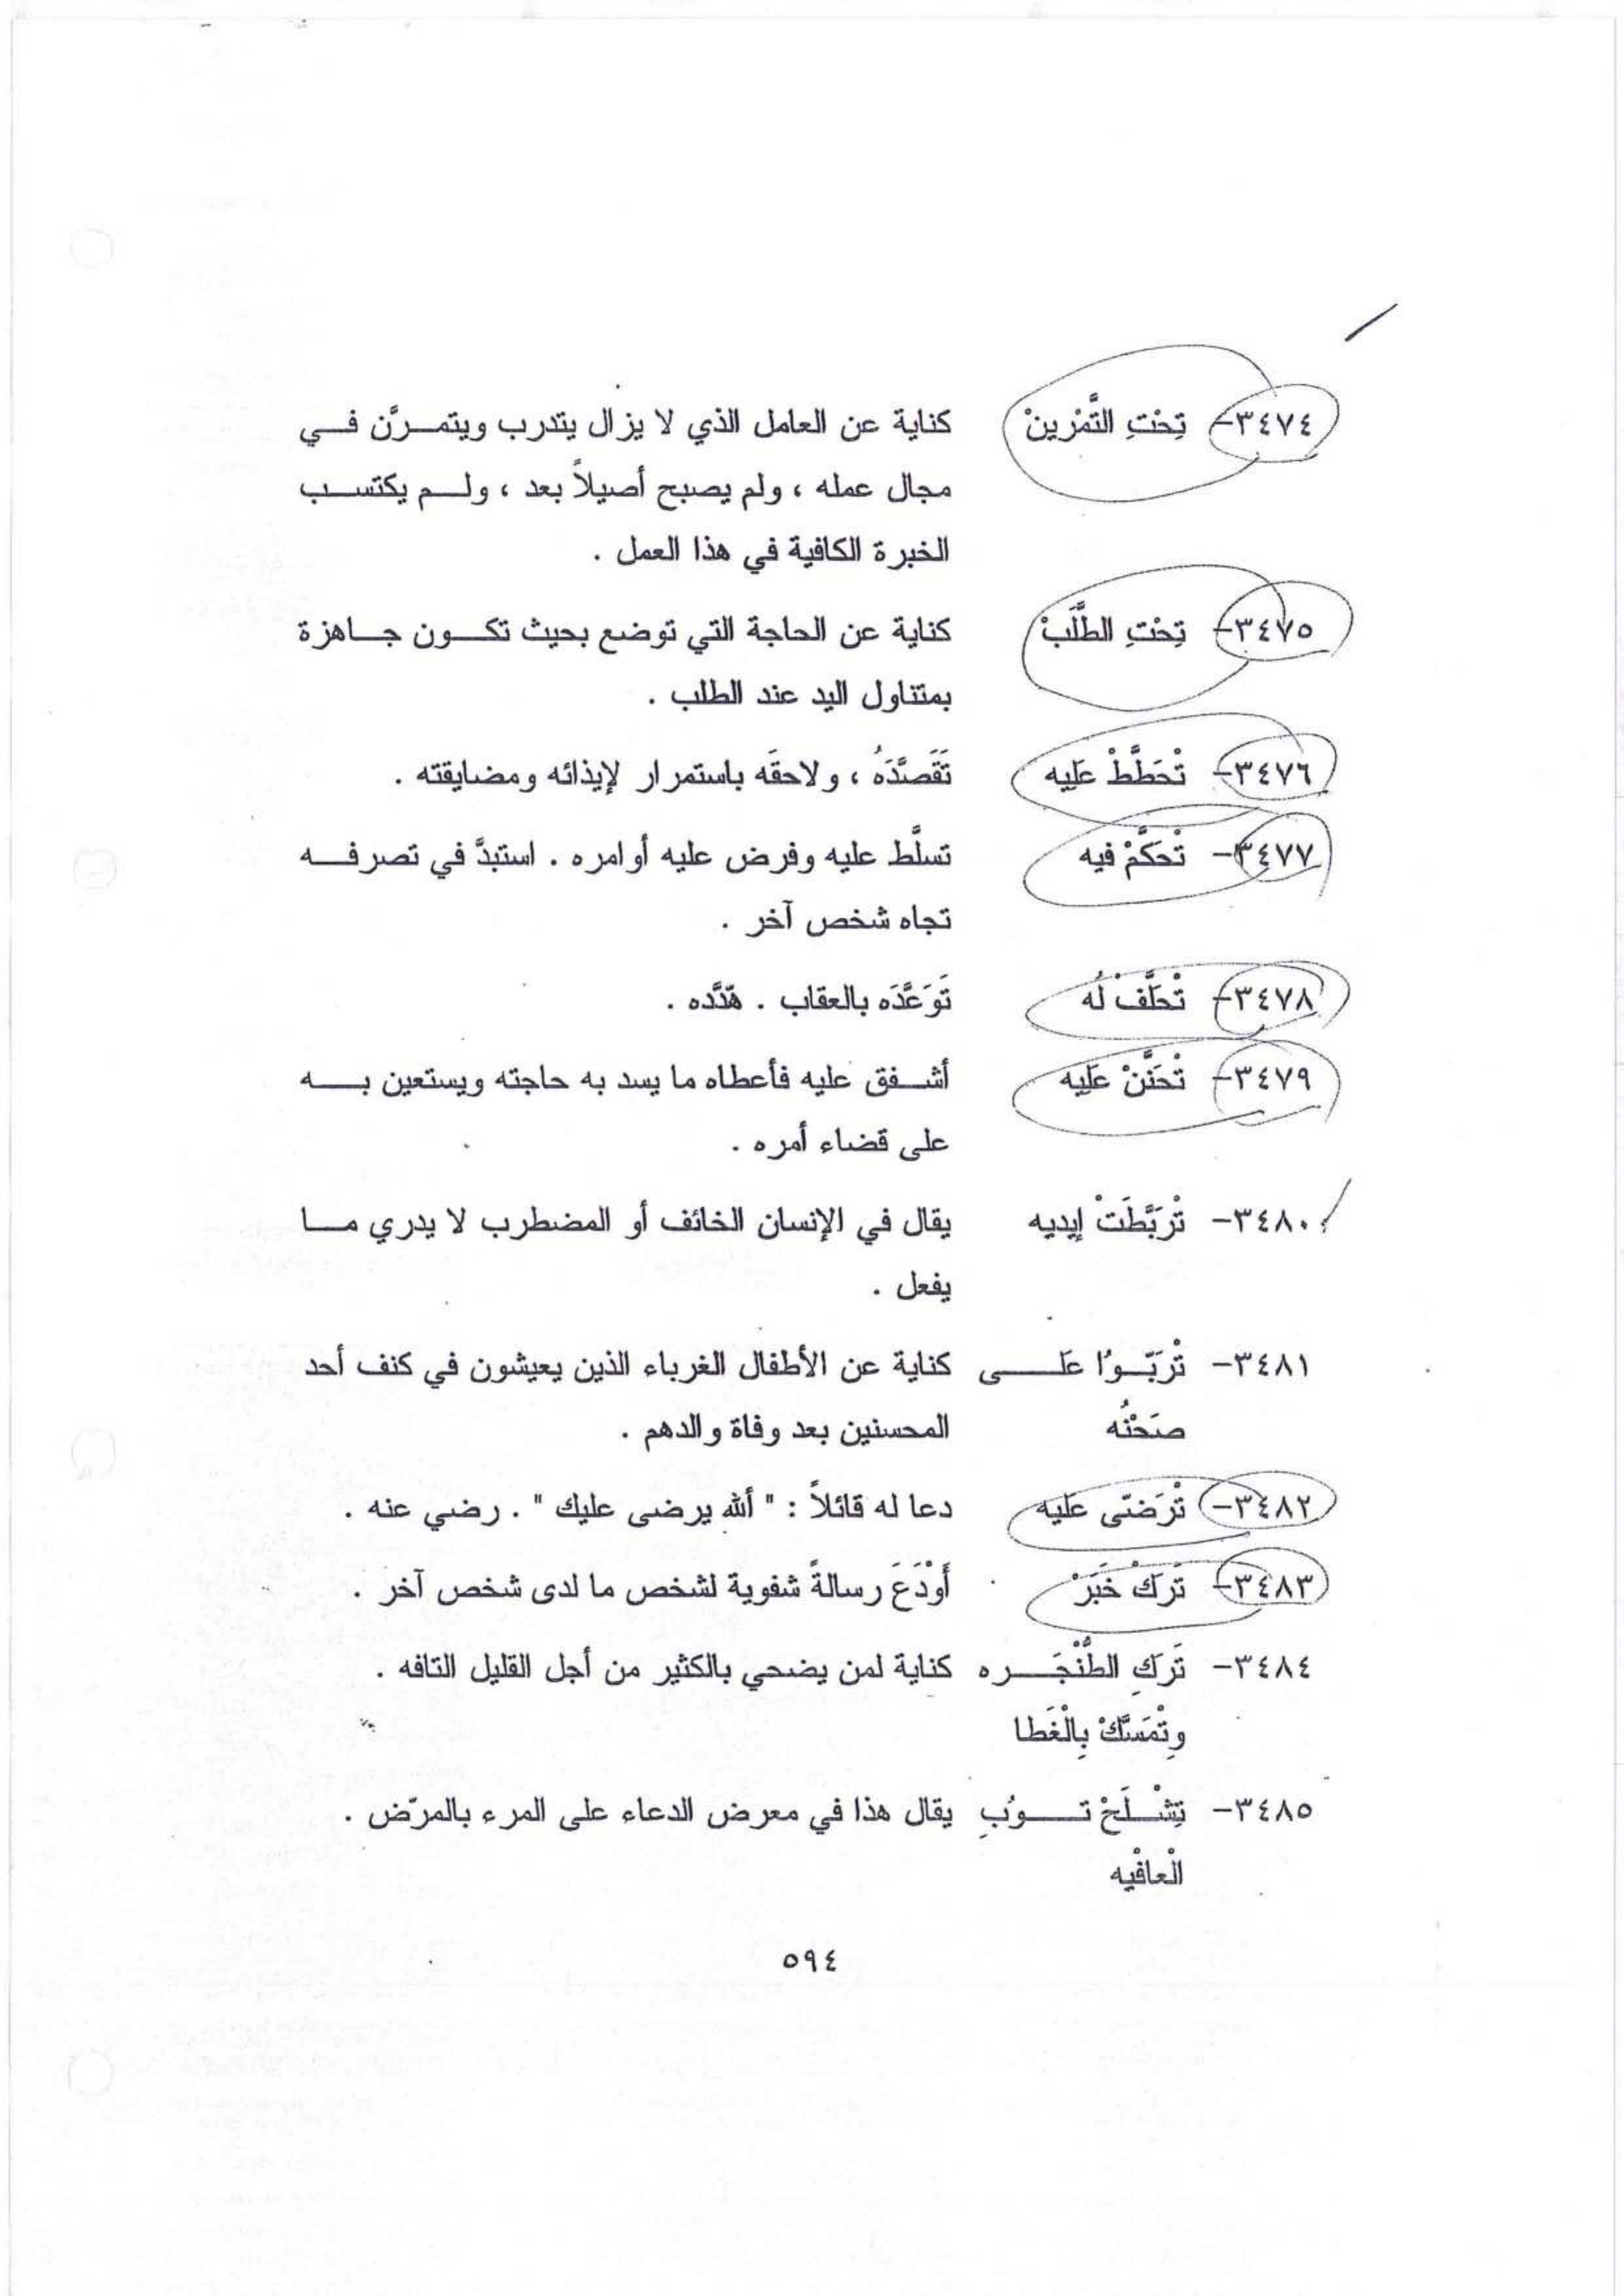 ٣٤٧٤- تِحْتِ التَّمْرينْ كناية عن العامل الذي لا يزال يتدرب ويتمرَّن في
مجال عمله ، ولم يصبح أصيلاً بعد ، ولم يكتسب
الخبرة الكافية في هذا العمل .
٣٤٧٥- تِحْتِ الطَّلَبْ كناية عن الحاجة التي توضع بحيث تكون جاهزة
بمتناول اليد عند الطلب .
٣٤٧٦- تْحَطَّطْ عَلِيه تَقَصَّدَهُ ، ولاحقَه باستمرار لإيذائه ومضايقته .
٣٤٧٧- تْحَكَّمْ فيه تسلَّط عليه وفرض عليه أوامره . استبدَّ في تصرفه
تجاه شخص آخر .
٣٤٧٨- تْحَلَّفْ لُه تَوَعَّدَه بالعقاب . هّدَّده .
٣٤٧٩- تْحَنَّنْ عَلِيه أشفق عليه فأعطاه ما يسد به حاجته ويستعين به
على قضاء أمره .
٣٤٨٠- تْرَبَّطَتْ إيديه يقال في الإنسان الخائف أو المضطرب لا يدري ما
يفعل .
٣٤٨١- تْرَبّوُا عَلى كناية عن الأطفال الغرباء الذين يعيشون في كنف أحد
صَحْنُه المحسنين بعد وفاة والدهم .
٣٤٨٢- تْرَضّى عَليه دعا له قائلاً : " ألله يرضى عليك " . رضي عنه .
٣٤٨٣- تَرَكْ خَبَرْ أَوْدَعَ رسالةً شفوية لشخص ما لدى شخص آخر .
٣٤٨٤- تَرَكِ الطُّنْجَره كناية لمن يضحي بالكثير من أجل القليل التافه .
وِتْمَسَّكْ بِالْغَطا
٣٤٨٥- تِشْلَحْ توُبِ يقال هذا في معرض الدعاء على المرء بالمرّض .
الْعافْيه
٥٩٤